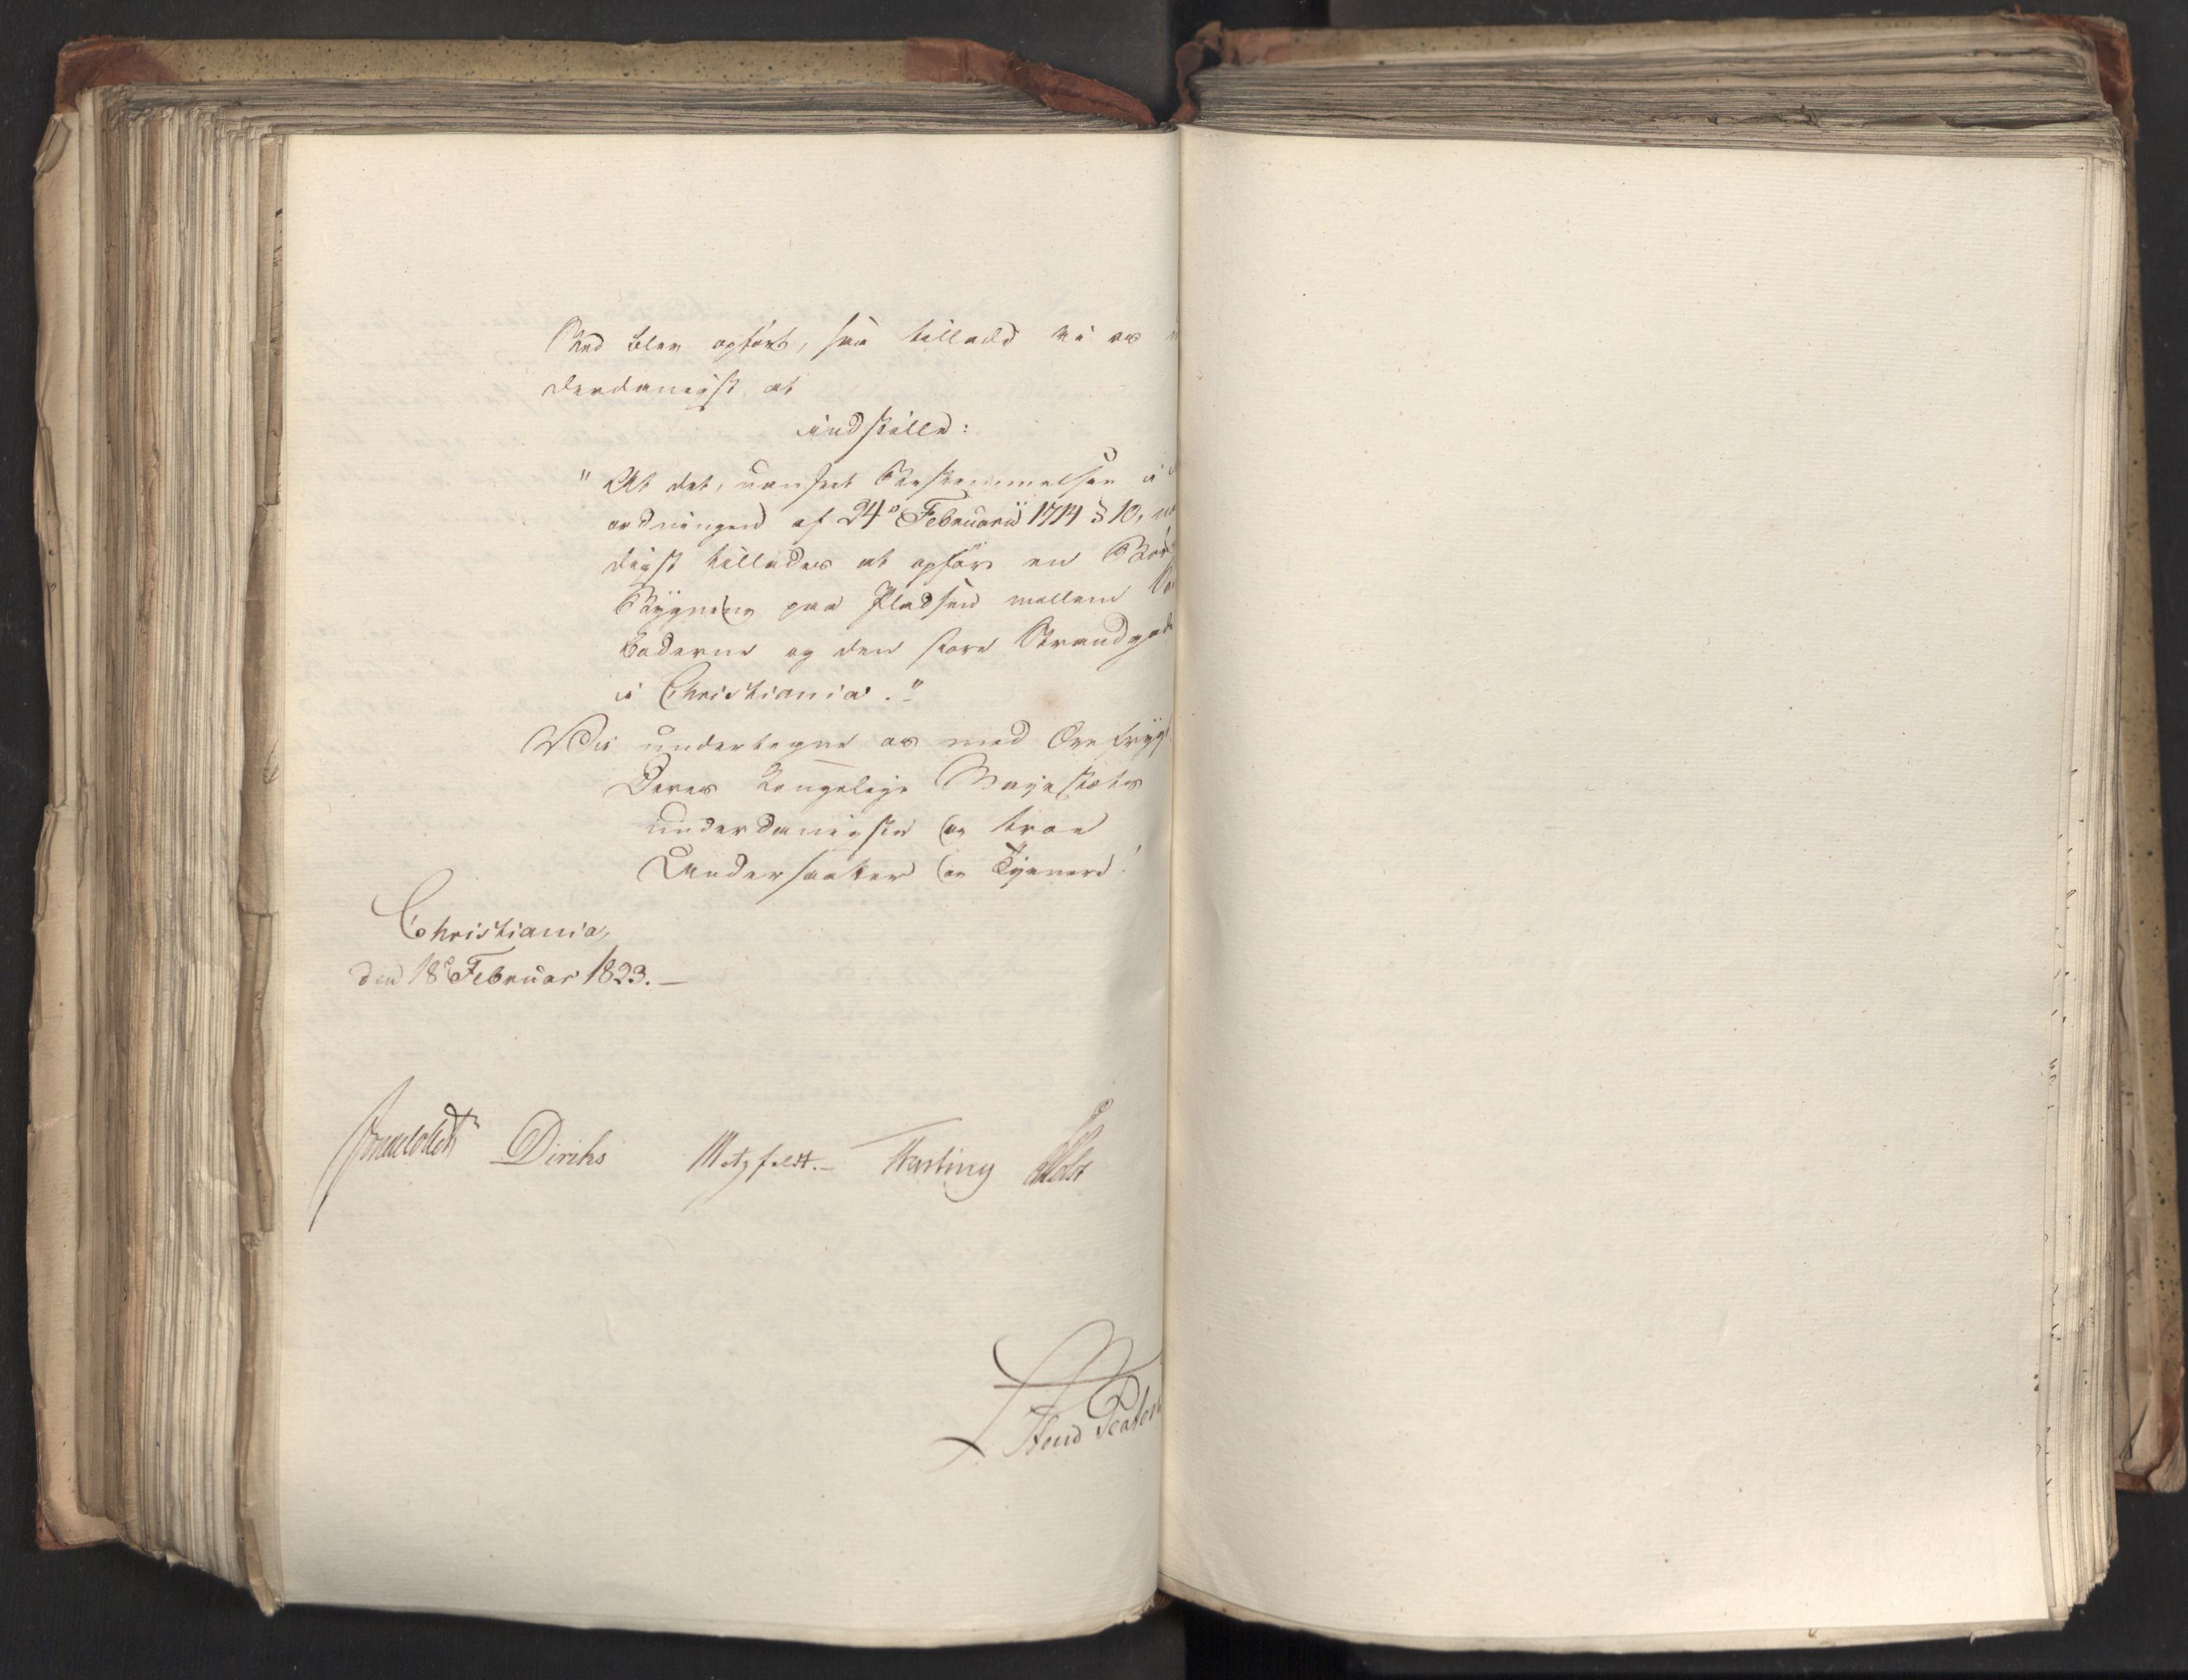 Sted blev opført, saa tillade vi os
derdanigst at
indstille:
"At det, uanseet Bestemmelsen i
ordningen af 24de Februarii 1714 § 10, naa
digst tillades at opføre en Bør
Bygning paa Pladsen mellem
boderne og den store Strandgade
i Christiania."
Vi undertegne os med Ærefrygt
Deres Kongelige Majestæts
underdanigste og troe
Undersaatter og Tjenere!
Christiania,
den 18de Februar 1823.—
Sommerhielm Diriks Motzfeldt.— Fasting Holst